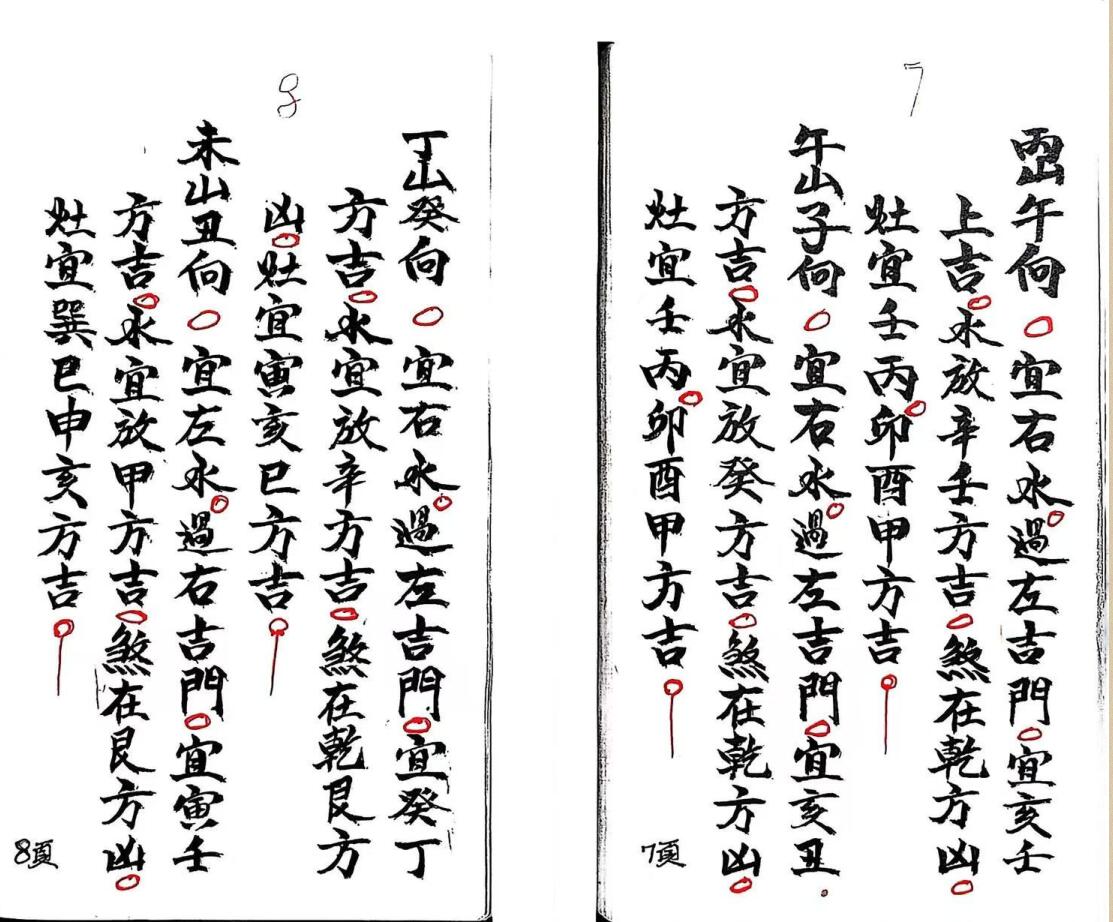 7
丙山午向。宜右水。過左吉門。宜亥壬
上吉。水放辛壬方吉。煞在乾方凶。
灶宜壬丙。卯酉甲方吉。
午山子向。宜右水。過左吉門。宜亥丑
方吉。水宜放癸方吉。煞在乾方凶。
灶宜壬丙。卯酉甲方吉。
7頁
8
丁山癸向。宜右水。過左吉門。宜癸丁
方吉。水宜放辛方吉。煞在乾艮方
凶。灶宜寅亥巳方吉。
未山丑向。宜左水。過右吉門。宜寅壬
方吉。水宜放甲方吉。煞在艮方凶。
灶宜巽巳申亥方吉。
8頁